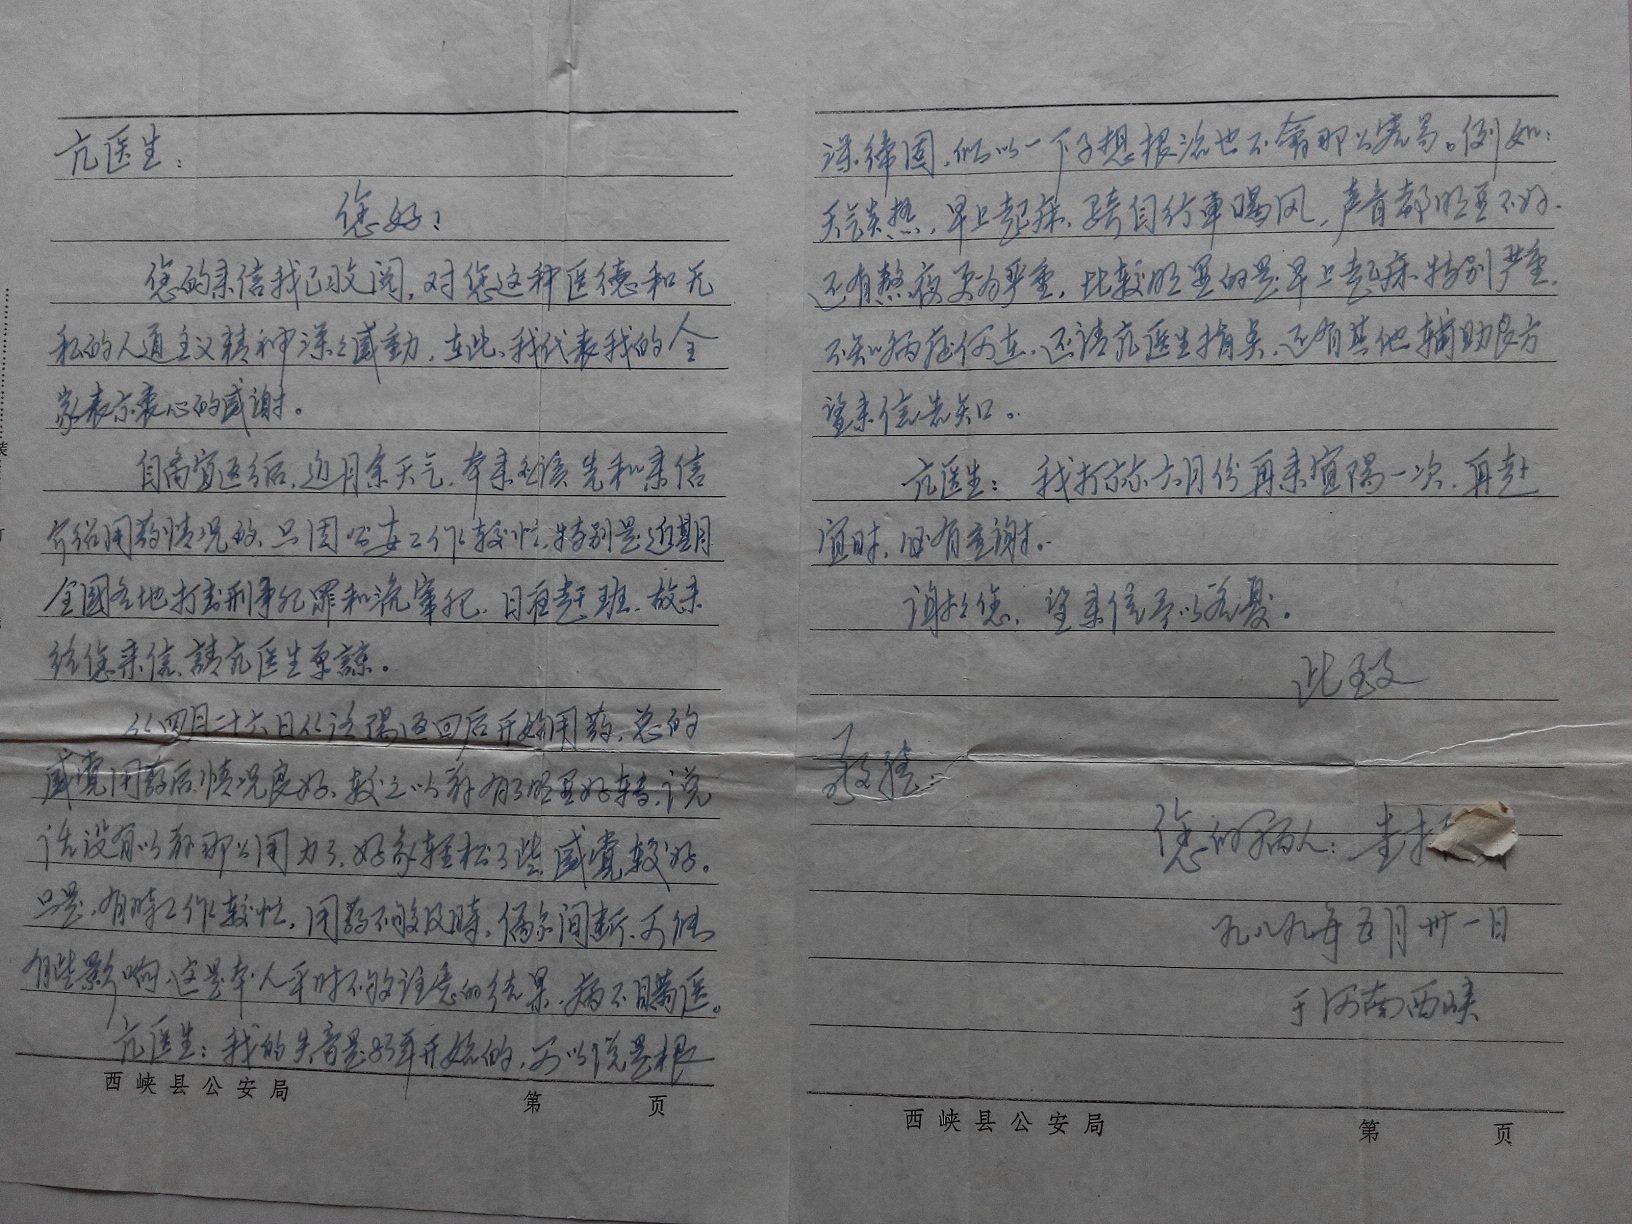 亢医生：
您好！
您的来信我已收阅，对您这种医德和无
私的人道主义精神深深感動，在此，我代表我的全
家表示衷心的感谢。
自离宜返后，近月余天气，本来应该先和来信
介绍用药情况的，只因公安工作较忙，特别是近期
全国各地打击刑事犯罪和流窜犯，日夜赶班，故未
给您来信，請亢医生原諒。
从四月二十六日从洛陽返回后开始用药，总的
感覚用药后情况良好，较之以前有了明显好转，说
话没有以前那么用力了，好象轻松了些，感覚较好。
只是，有時工作较忙，用药不够及時，偶尔间断，可能
有些影响，这是本人平时不够注意的结果，病不自篤医。
亢医生：我的失音是83年开始的，可以说是根
西峡县公安局 第 页
深締固，所以一下子想根治也不會那么容易。例如：
天气炎热，早上起床，骑自行車喝风，声音都明显不好，
还有熬夜更为严重，比较明显的是早上起床特别严重，
不知病症何在，还请亢医生指点，还有其他輔助良方
望来信告知。
亢医生：我打标六月份再来宜陽一次，再赴
宜时，必有重謝。
谢谢您，望来信予以答复。
此致
敬禮：
您的病人：
九八九年五月卅一日
于河南西峡
西峡县公安局 第 页